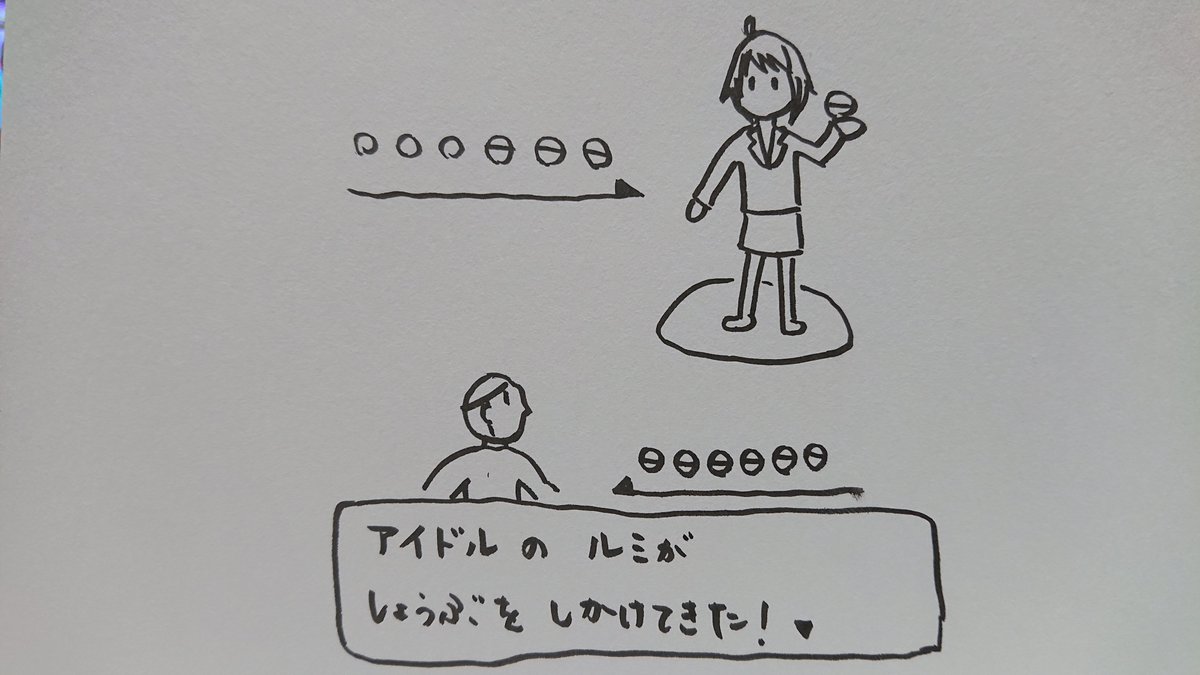 アイドル の ルミが
しょうぶを しかけてきた!